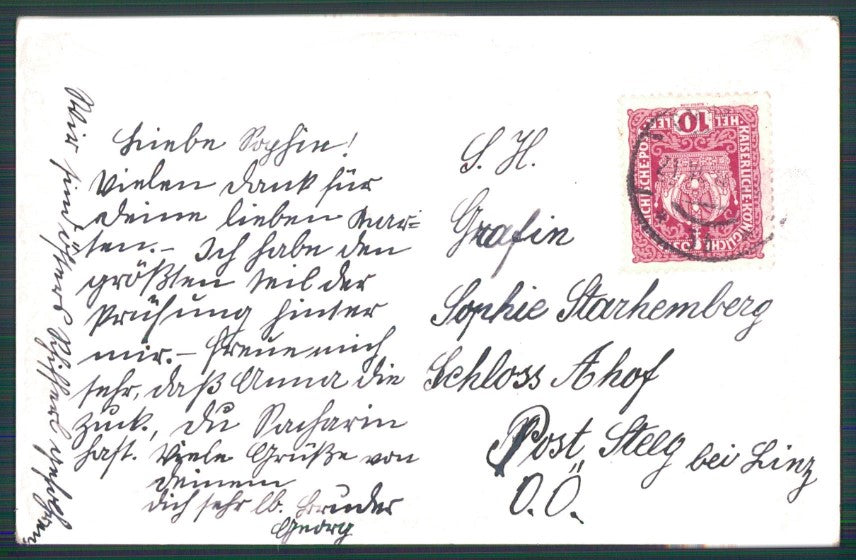 Liebe Sophie!
Vielen Dank für
Deine lieben Kar-
ten. – Ich habe den
größten Teil der
Prüfung hinter
mir. – Freue mich
sehr, daß Anna die
Zuck., Du Sacharin
hast. Viele Grüße von
Deinem
dich sehr lb. Bruder
Georg
Wir sind
S. H.
Gräfin
Sophie Starhemberg
Schloss Ahof
Post Steeg bei Linz
O.Ö.
KAISERLICHE KÖNIGLICHE
HELLER
10